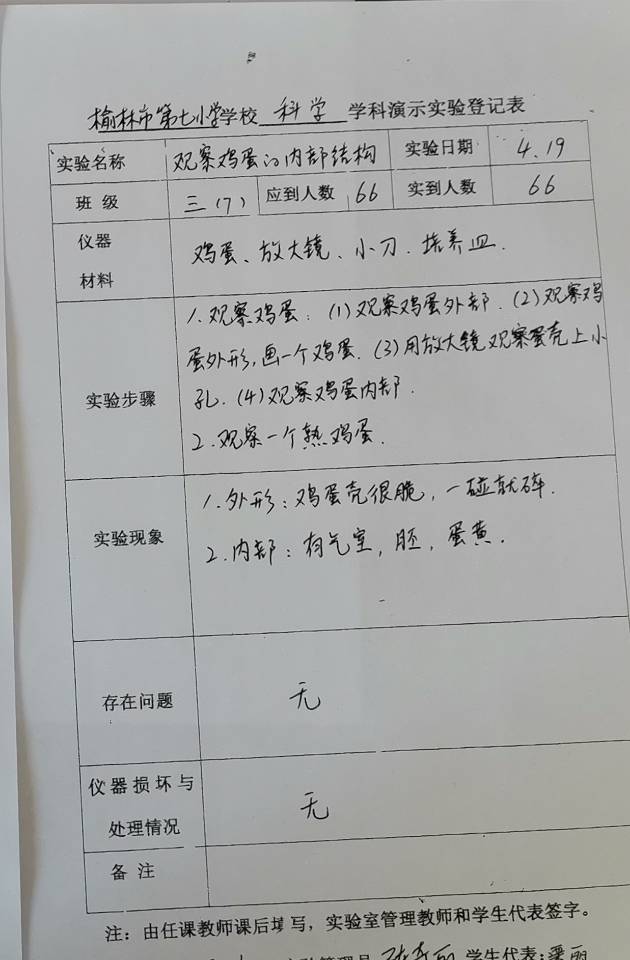 榆林市第七小学学校 科学 学科演示实验登记表
实验名称 观察鸡蛋的内部结构 实验日期 4.19
班 级 三(7) 应到人数 66 实到人数 66
仪器
材料
鸡蛋、放大镜、小刀.培养皿.
实验步骤
1.观察鸡蛋:(1)观察鸡蛋外部.(2)观察鸡
蛋外形,画一个鸡蛋.(3)用放大镜观察蛋壳上小
孔.(4)观察鸡蛋内部.
2.观察一个熟鸡蛋.
实验现象
1.外形:鸡蛋壳很脆,一碰就碎.
2.内部:有气室,胚,蛋黄.
存在问题 无
仪器损坏与
处理情况
无
备 注
注:由任课教师课后填写,实验室管理教师和学生代表签字。
学生代表:梁丽